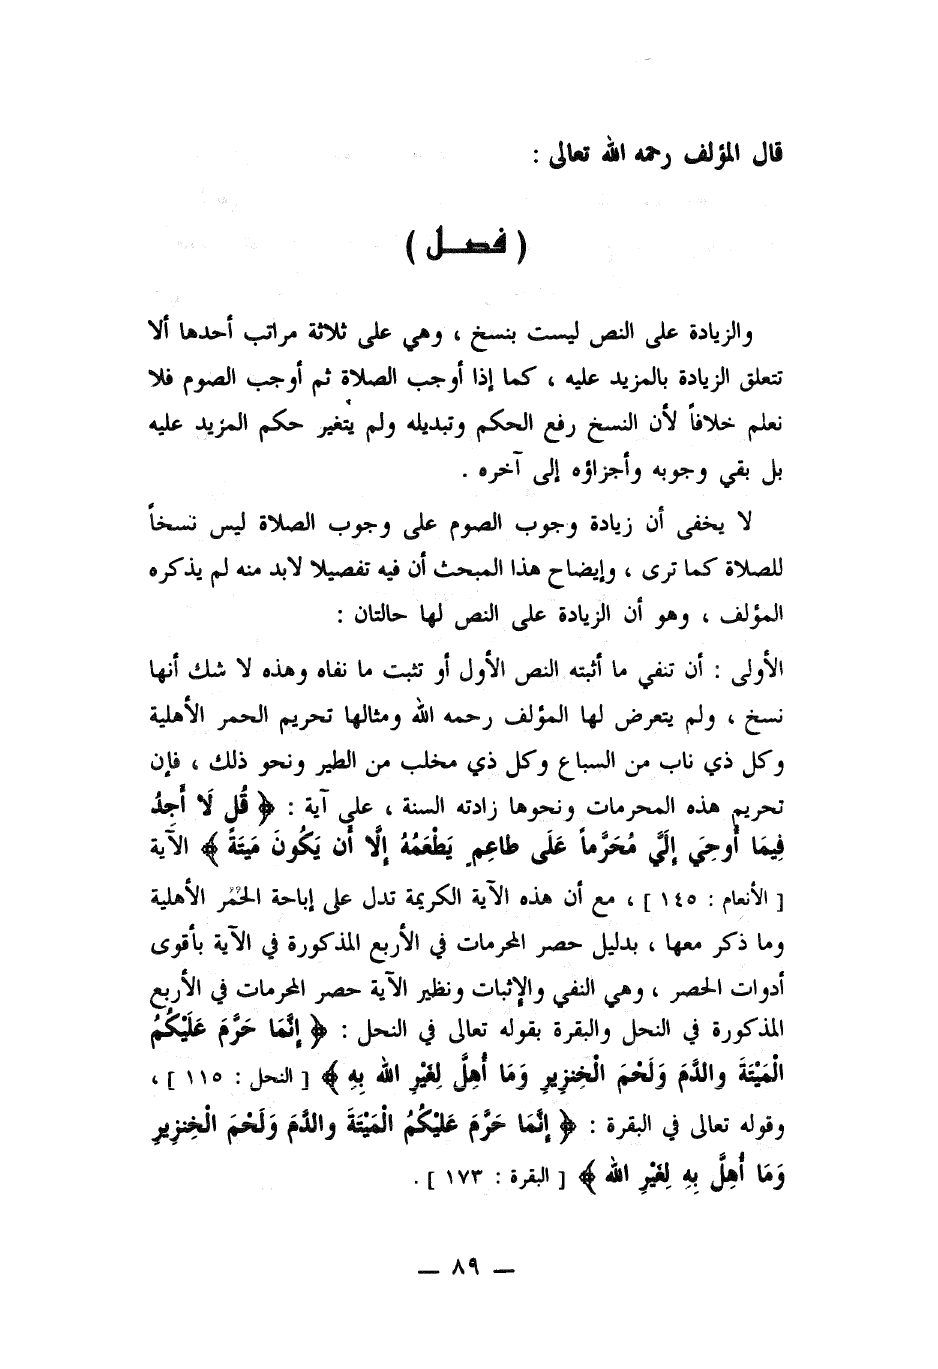 قال المؤلف رحمه الله تعالى :
( فصــل )
والزيادة على النص ليست بنسخ ، وهي على ثلاثة مراتب أحدها ألا
تتعلق الزيادة بالمزيد عليه ، كما إذا أوجب الصلاة ثم أوجب الصوم فلا
نعلم خلافاً لأن النسخ رفع الحكم وتبديله ولم يتغير حكم المزيد عليه
بل بقي وجوبه وأجزاؤه إلى آخره .
لا يخفى أن زيادة وجوب الصوم على وجوب الصلاة ليس نسخاً
للصلاة كما ترى ، وإيضاح هذا المبحث أن فيه تفصيلا لابد منه لم يذكره
المؤلف ، وهو أن الزيادة على النص لها حالتان :
الأولى : أن تنفي ما أثبته النص الأول أو تثبت ما نفاه وهذه لا شك أنها
نسخ ، ولم يتعرض لها المؤلف رحمه الله ومثالها تحريم الحمر الأهلية
وكل ذي ناب من السباع وكل ذي مخلب من الطير ونحو ذلك ، فإن
تحريم هذه المحرمات ونحوها زادته السنة ، على آية : ﴿ قُل لَا أَجِدُ
فِيمَا أُوحِيَ إِلَيَّ مُحَرَّماً عَلَى طاعِمٍ يَطْعَمُهُ إِلَّا أَن يَكُونَ مَيتَةً ﴾ الآية
[ الأنعام : ١٤٥ ] ، مع أن هذه الآية الكريمة تدل على إباحة الحُمُر الأهلية
وما ذكر معها ، بدليل حصر المحرمات في الأربع المذكورة في الآية بأقوى
أدوات الحصر ، وهي النفي والإثبات ونظير الآية حصر المحرمات في الأربع
المذكورة في النحل والبقرة بقوله تعالى في النحل : ﴿ إنَّمَا حَرَّمَ عَلَيْكُمُ
الْمَيْتَةَ والدَّمَ وَلَحْمَ الْخِنزِيرِ وَمَا أُهِلَّ لِغَيْرِ الله بِهِ ﴾ [ النحل : ١١٥ ] ،
وقوله تعالى في البقرة : ﴿ إنَّمَا حَرَّمَ عَلَيْكُمُ الْمَيْتَةَ والدَّمَ وَلَحْمَ الْخِنزِيرِ
وَمَا أُهِلَّ بِهِ لِغَيْرِ الله ﴾ [ البقرة : ١٧٣ ] .
— ٨٩ —